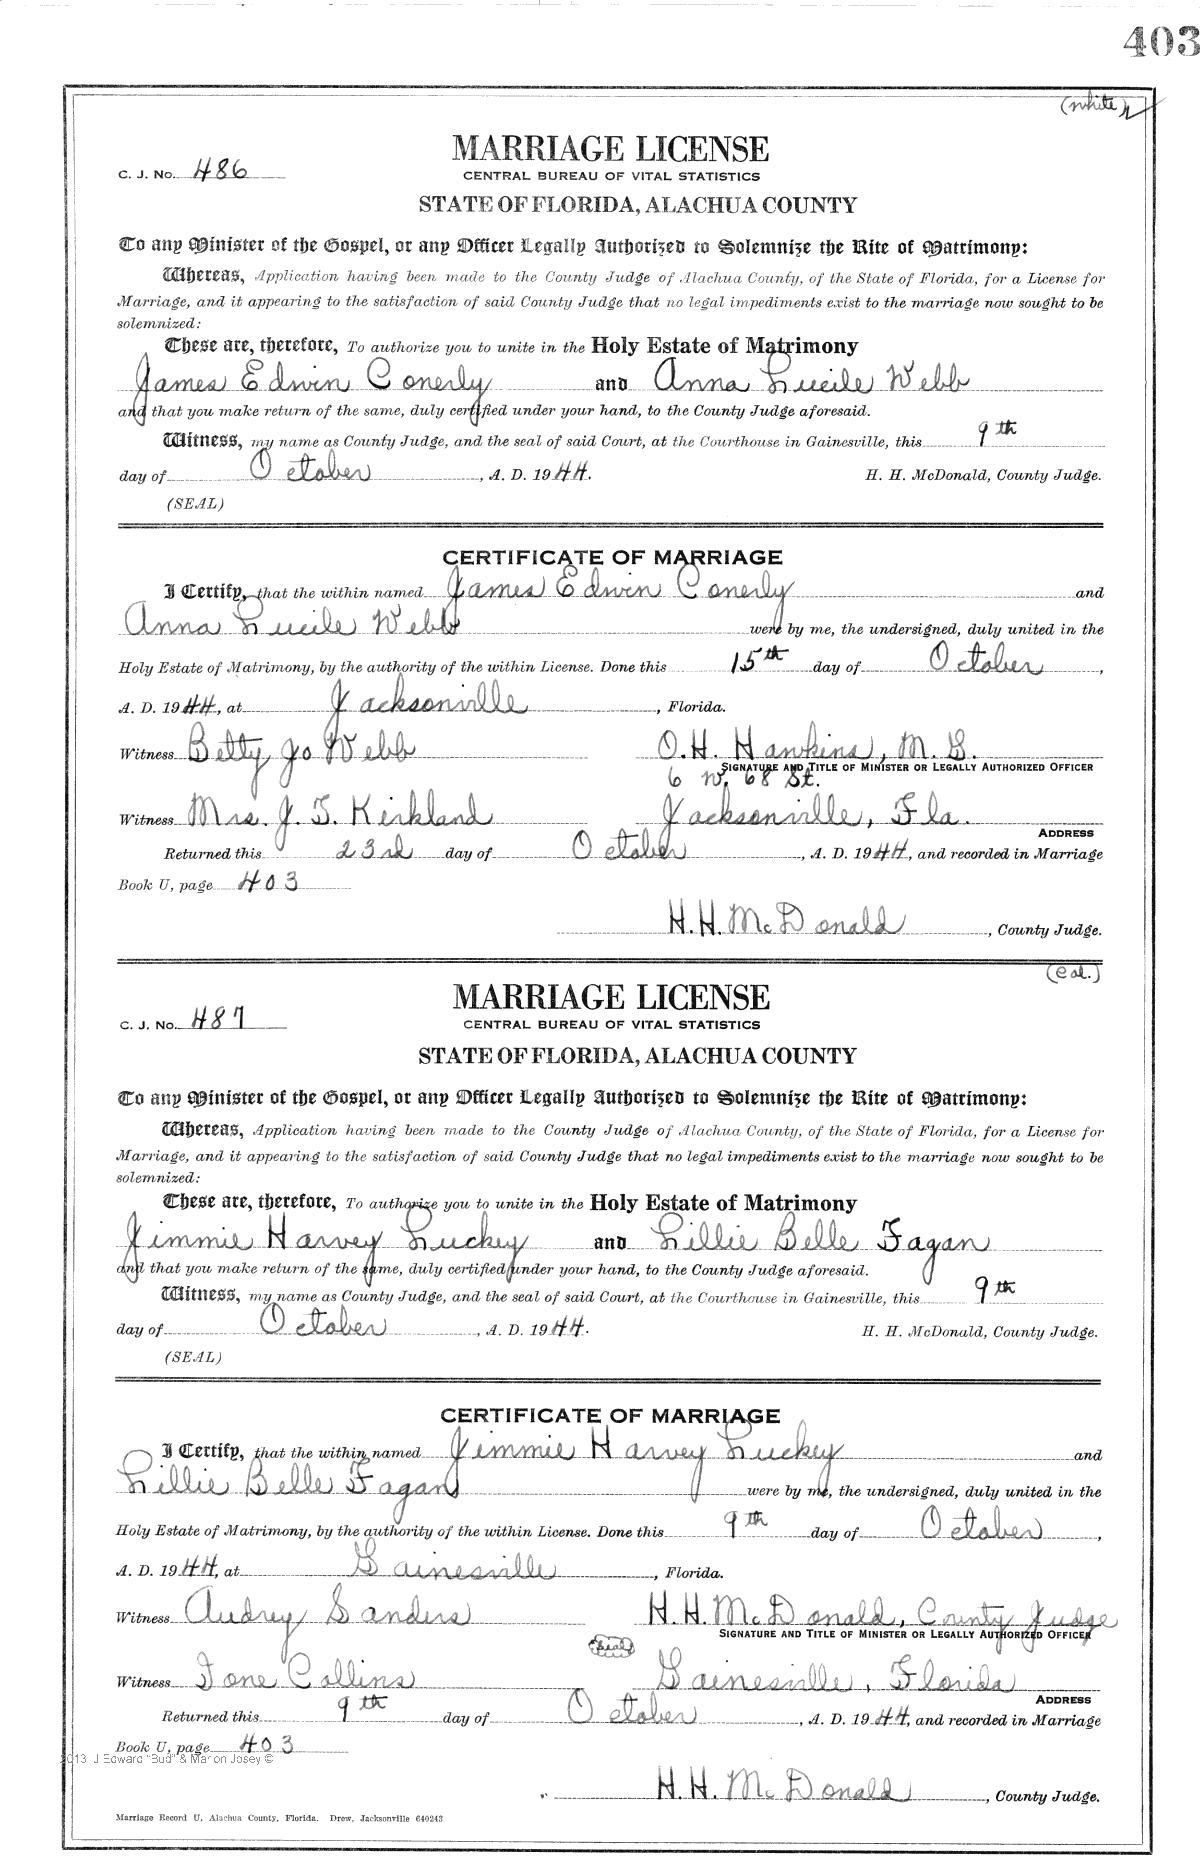 403
(white)
MARRIAGE LICENSE
C. J. No. 486
CENTRAL BUREAU OF VITAL STATISTICS
STATE OF FLORIDA, ALACHUA COUNTY
To any Minister of the Gospel, or any Officer Legally Authorized to Solemnize the Rite of Matrimony:
Whereas, Application having been made to the County Judge of Alachua County, of the State of Florida, for a License for
Marriage, and it appearing to the satisfaction of said County Judge that no legal impediments exist to the marriage now sought to be
solemnized:
These are, therefore, To authorize you to unite in the Holy Estate of Matrimony
James Edwin Conerly and Anna Lucile Webb
and that you make return of the same, duly certified under your hand, to the County Judge aforesaid.
Witness, my name as County Judge, and the seal of said Court, at the Courthouse in Gainesville, this 9th
day of October, A. D. 1944. H. H. McDonald, County Judge.
(SEAL)
CERTIFICATE OF MARRIAGE
I Certify, that the within named James Edwin Conerly and
Anna Lucile Webb were by me, the undersigned, duly united in the
Holy Estate of Matrimony, by the authority of the within License. Done this 15th day of October,
A. D. 1944, at Jacksonville, Florida.
Witness Betty Jo Webb O. H. Hawkins, M. G.
SIGNATURE AND TITLE OF MINISTER OR LEGALLY AUTHORIZED OFFICER
6 W. 68 St.
Witness Mrs. J. T. Kirkland Jacksonville, Fla.
ADDRESS
Returned this 23rd day of October, A. D. 1944, and recorded in Marriage
Book U, page 403
H. H. McDonald, County Judge.
(Col.)
MARRIAGE LICENSE
C. J. No. 487
CENTRAL BUREAU OF VITAL STATISTICS
STATE OF FLORIDA, ALACHUA COUNTY
To any Minister of the Gospel, or any Officer Legally Authorized to Solemnize the Rite of Matrimony:
Whereas, Application having been made to the County Judge of Alachua County, of the State of Florida, for a License for
Marriage, and it appearing to the satisfaction of said County Judge that no legal impediments exist to the marriage now sought to be
solemnized:
These are, therefore, To authorize you to unite in the Holy Estate of Matrimony
Jimmie Harvey Luckey and Lillie Belle Fagan
and that you make return of the same, duly certified under your hand, to the County Judge aforesaid.
Witness, my name as County Judge, and the seal of said Court, at the Courthouse in Gainesville, this 9th
day of October, A. D. 1944. H. H. McDonald, County Judge.
(SEAL)
CERTIFICATE OF MARRIAGE
I Certify, that the within named Jimmie Harvey Luckey and
Lillie Belle Fagan were by me, the undersigned, duly united in the
Holy Estate of Matrimony, by the authority of the within License. Done this 9th day of October,
A. D. 1944, at Gainesville, Florida.
Witness Audrey Sanders H. H. McDonald, County Judge
SIGNATURE AND TITLE OF MINISTER OR LEGALLY AUTHORIZED OFFICER
Seal
Witness Ione Collins Gainesville, Florida
ADDRESS
Returned this 9th day of October, A. D. 1944, and recorded in Marriage
Book U, page 403
2013 J Edward "Bud" & Marion Josey ©
H. H. McDonald, County Judge.
Marriage Record U, Alachua County, Florida. Drew, Jacksonville 640243